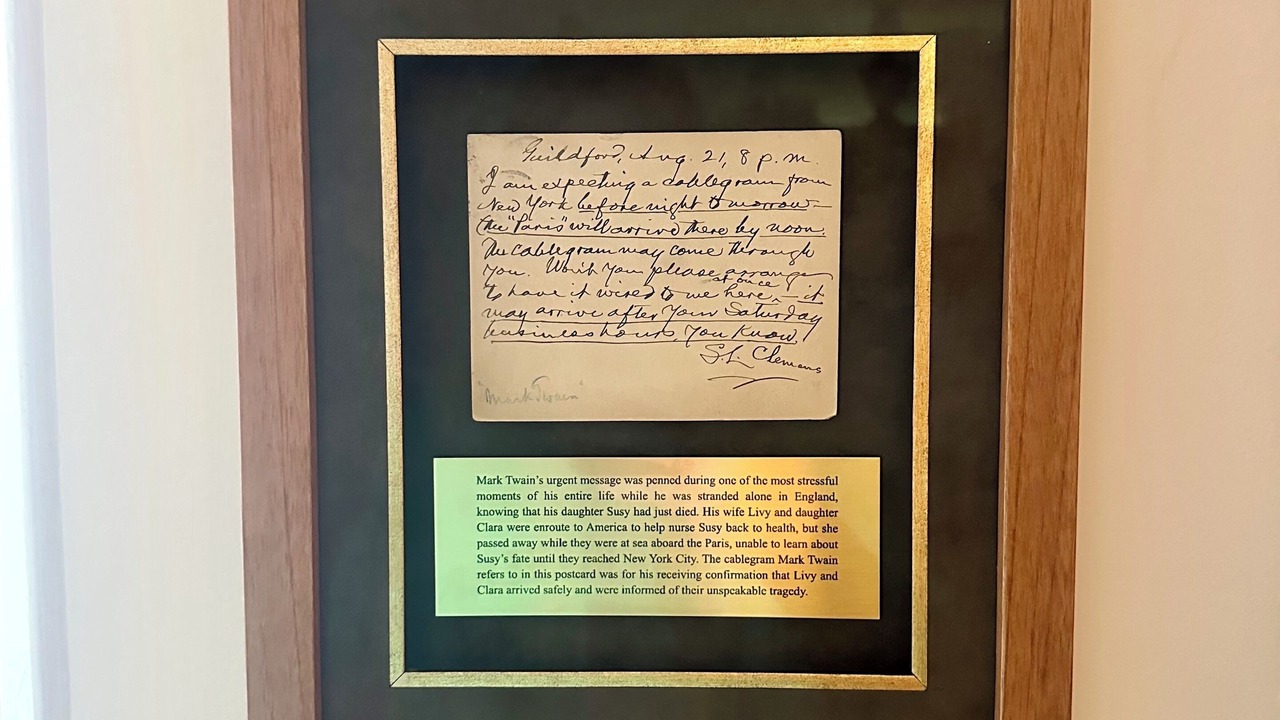 Guildford, Aug. 21, 8 p.m.
I am expecting a cablegram from
New York before night tomorrow—
the "Paris" will arrive there by noon.
The cablegram may come through
you. Won't you please arrange
at once
to have it wired to me here, — it
may arrive after your Saturday
business hours, you know.
S. L. Clemens
"Mark Twain"
Mark Twain's urgent message was penned during one of the most stressful
moments of his entire life while he was stranded alone in England,
knowing that his daughter Susy had just died. His wife Livy and daughter
Clara were enroute to America to help nurse Susy back to health, but she
passed away while they were at sea aboard the Paris, unable to learn about
Susy's fate until they reached New York City. The cablegram Mark Twain
refers to in this postcard was for his receiving confirmation that Livy and
Clara arrived safely and were informed of their unspeakable tragedy.